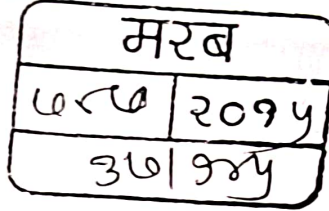 मरब
७८७ | २०१५
३७ | १४५